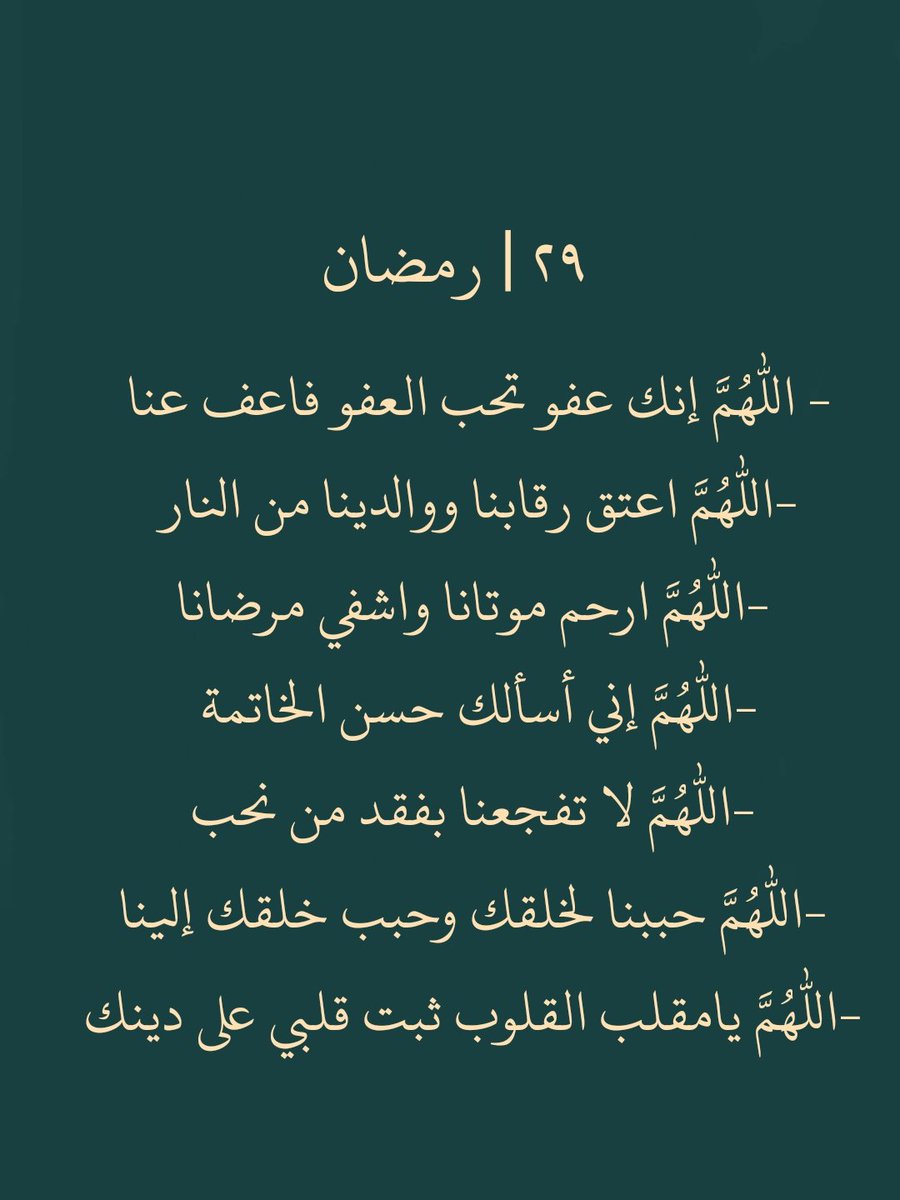 ٢٩ | رمضان
- اللّٰهُمَّ إنك عفو تحب العفو فاعف عنا
-اللّٰهُمَّ اعتق رقابنا ووالدينا من النار
-اللّٰهُمَّ ارحم موتانا واشفي مرضانا
-اللّٰهُمَّ إني أسألك حسن الخاتمة
-اللّٰهُمَّ لا تفجعنا بفقد من نحب
-اللّٰهُمَّ حببنا لخلقك وحبب خلقك إلينا
-اللّٰهُمَّ يامقلب القلوب ثبت قلبي على دينك